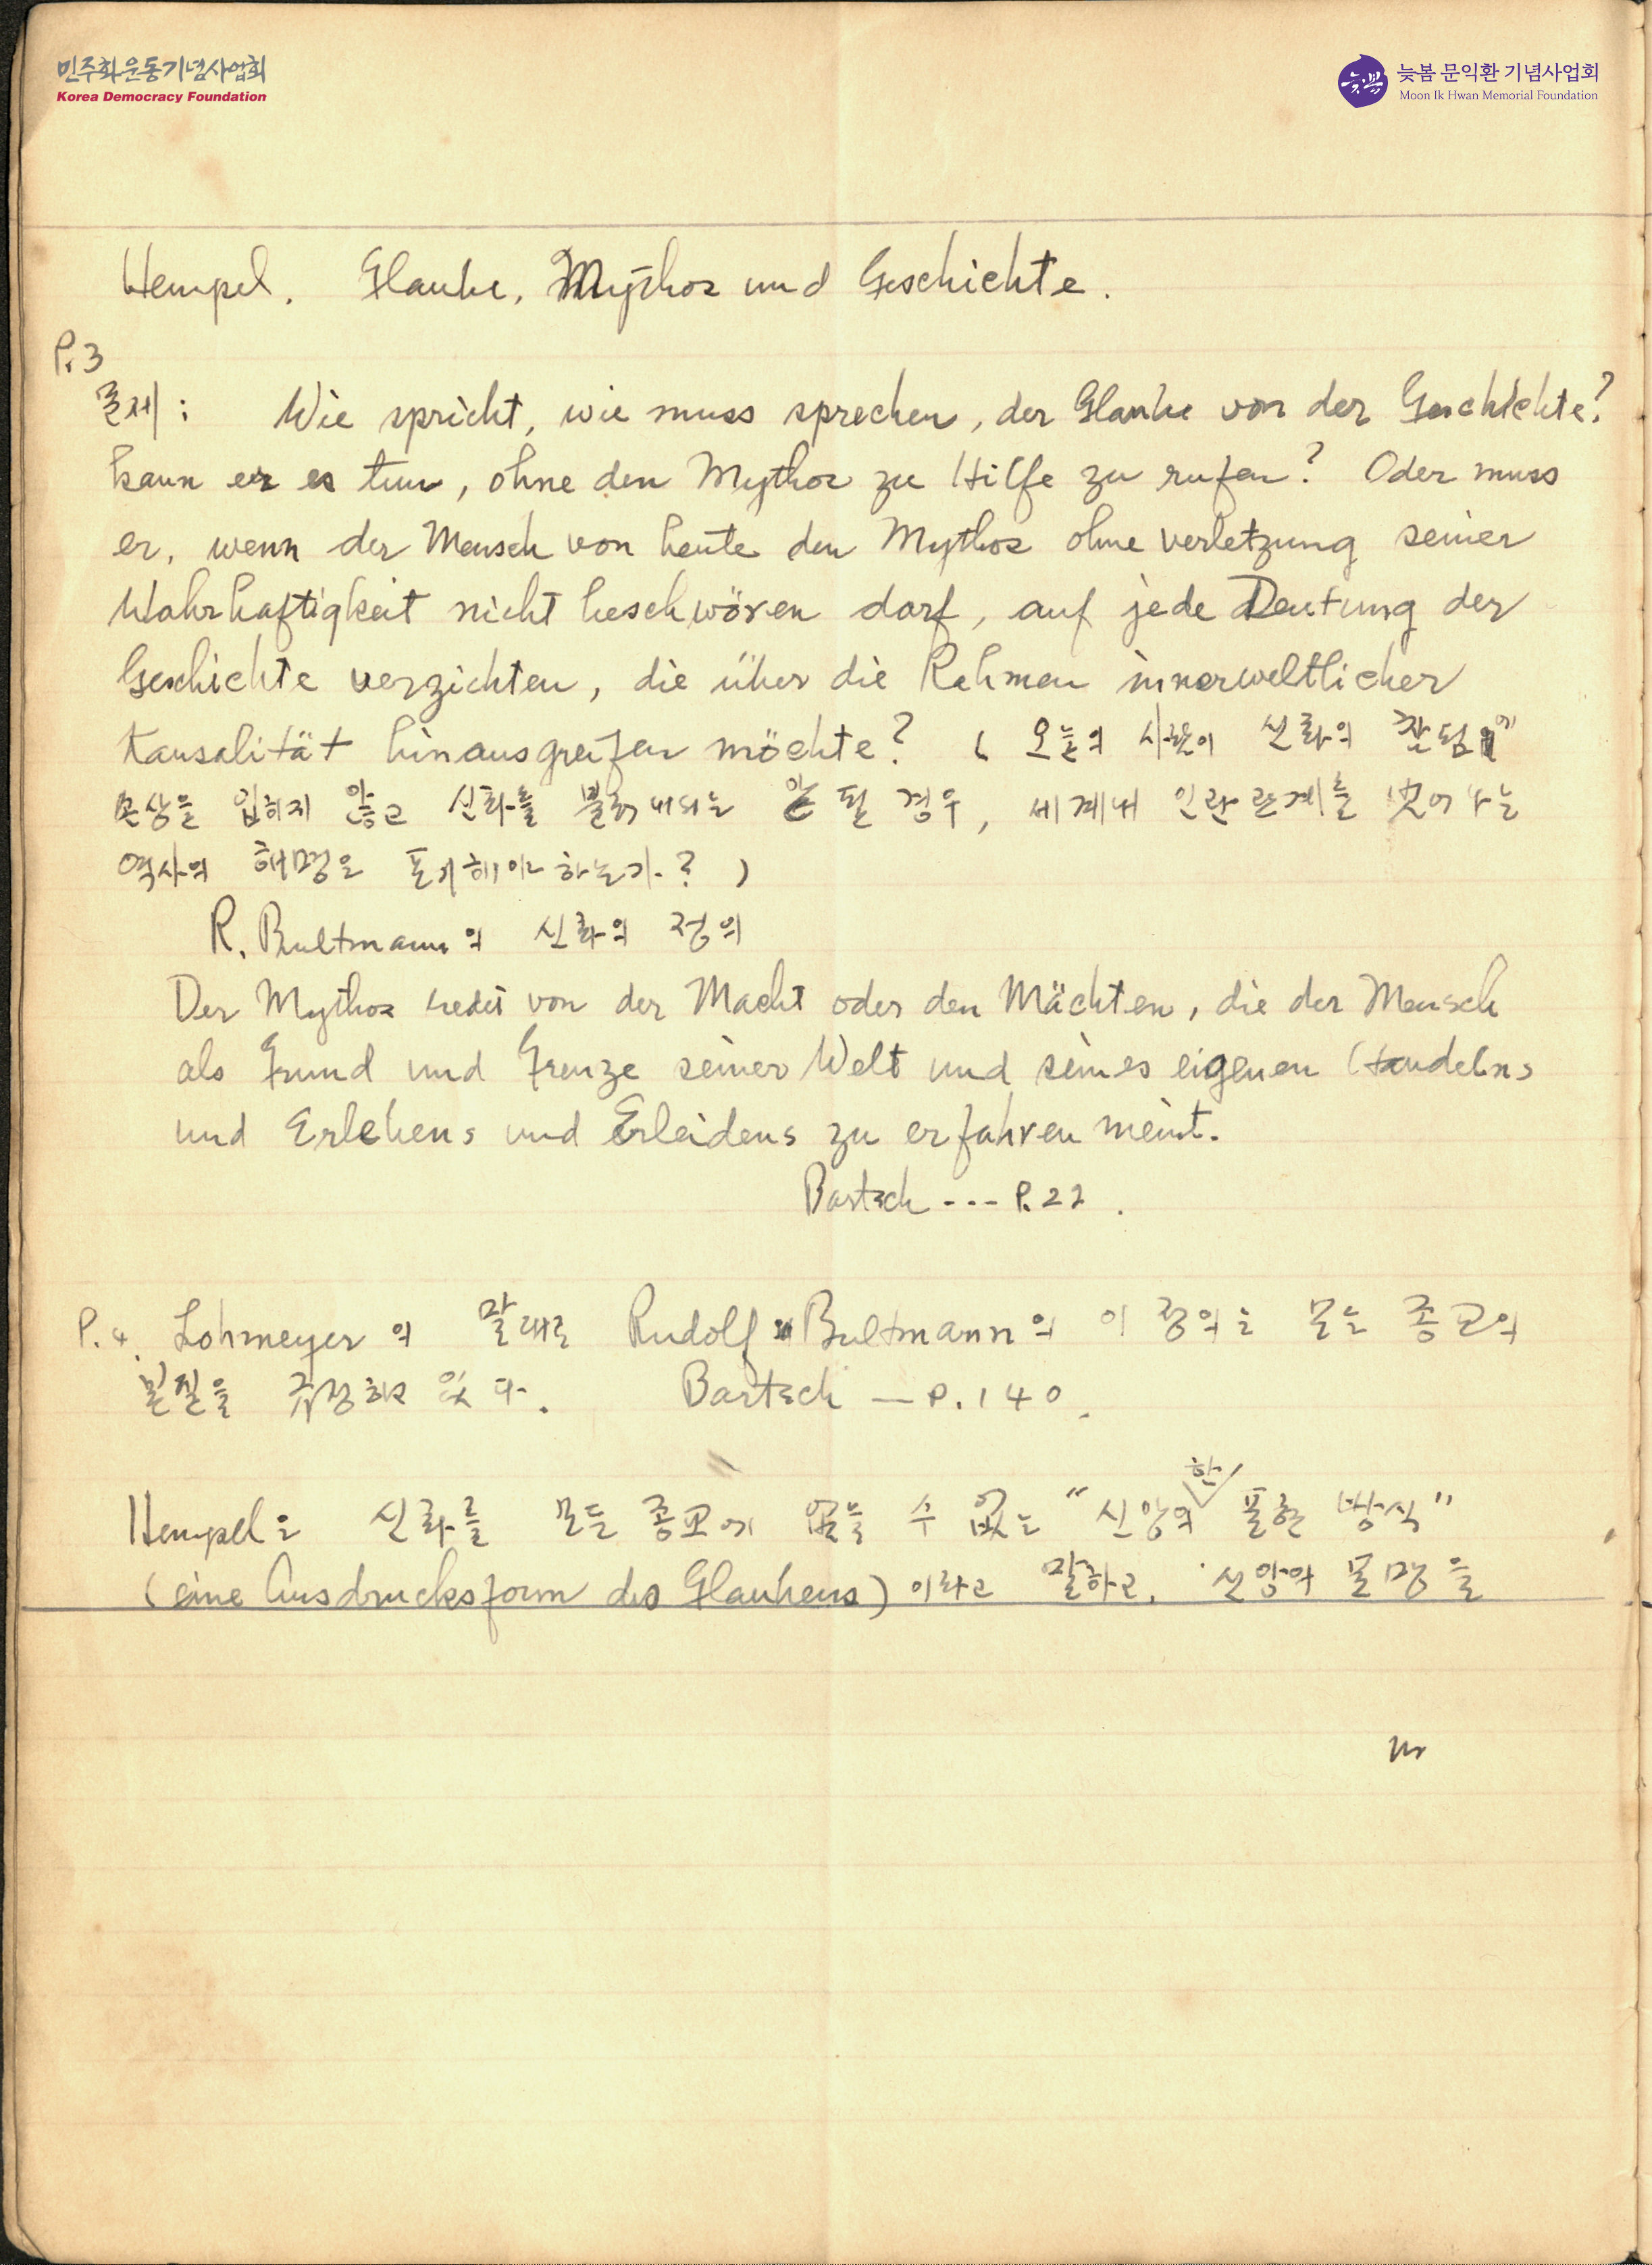 민주화운동기념사업회
Korea Democracy Foundation
늦봄
늦봄 문익환 기념사업회
Moon Ik Hwan Memorial Foundation
Hempel. Glaube, Mythos und Geschichte.
P.3
문제: Wie spricht, wie muss sprechen, der Glaube von der Geschichte?
kann er es tun, ohne den Mythos zu Hilfe zu rufen? Oder muss
er, wenn der Mensch von heute den Mythos ohne verletzung seiner
Wahrhaftigkeit nicht beschwören darf, auf jede Deutung der
Geschichte verzichten, die über die Rahmen innerweltlicher
Kausalität hinausgreifen möchte? ( 오늘의 사람이 신화의 참됨에
손상을 입히지 않고 신화를 불러내서는 안 될 경우, 세계내 인관관계를 벗어나는
역사의 해명은 포기해야 하는가? )
R. Bultmann의 신화의 정의
Der Mythos redet von der Macht oder den Mächten, die der Mensch
als Grund und Grenze seiner Welt und seines eigenen Handelns
und Erlebens und Erleidens zu erfahren meint.
Bartsch --- P.22.
P.4. Lohmeyer의 말대로 Rudolf Bultmann의 이 정의는 모든 종교의
본질을 규정하고 있다. Bartsch — P.140.
Hempel은 신화를 모든 종교에 없을 수 없는 "신앙의 한 표현 방식"
(eine Ausdrucksform des Glaubens) 이라고 말하고, 신앙의